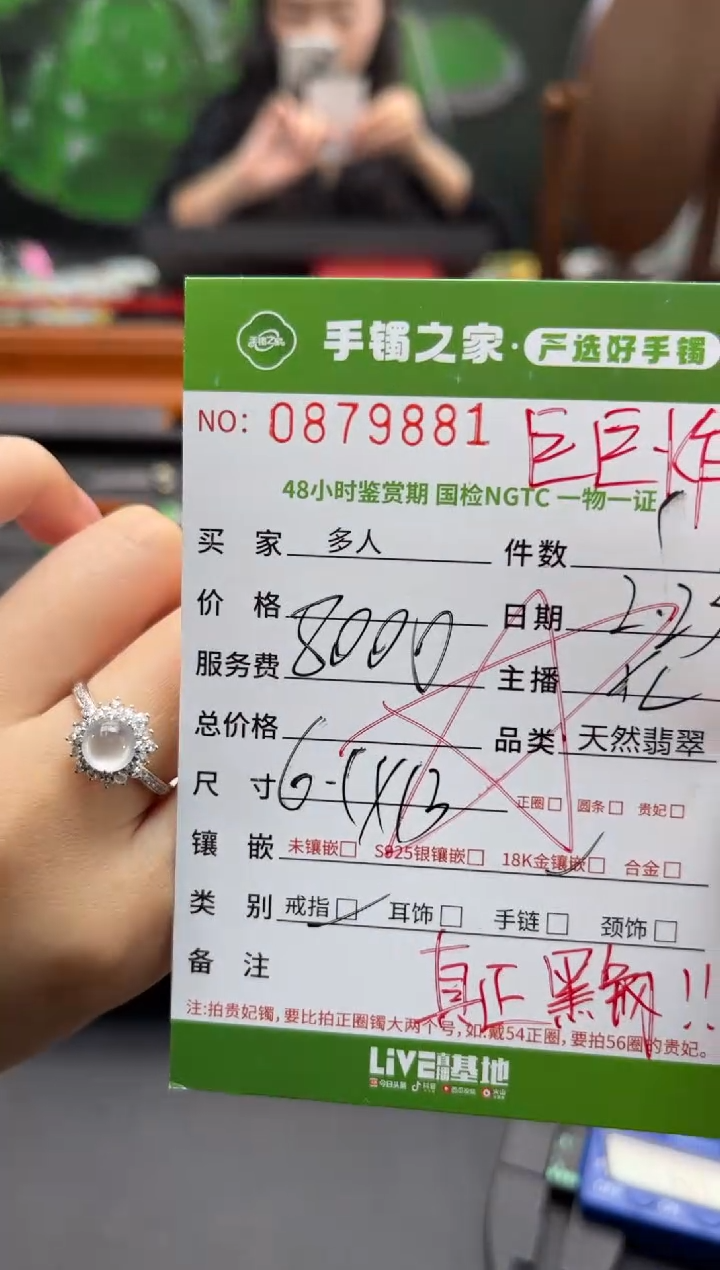 手镯之家·严选好手镯
NO: 0879881 巨巨炸
48小时鉴赏期 国检NGTC 一物一证
买家 多人 件数 1
价格 8000 日期 2.25
服务费 主播 XL
总价格 品类 天然翡翠
尺寸 正圈□ 圆条□ 贵妃□
镶嵌 未镶嵌□ S925银镶嵌□ 18K金镶嵌□ 合金□
类别 戒指□ 耳饰□ 手链□ 颈饰□
备注 真正黑钢!!
注:拍贵妃镯,要比拍正圈镯大两个号,如:戴54正圈,要拍56圈的贵妃。
LiVE直播基地
今日头条 抖音 西瓜视频 火山